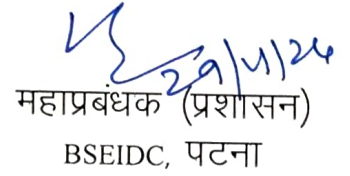 29/4/24
महाप्रबंधक (प्रशासन)
BSEIDC, पटना